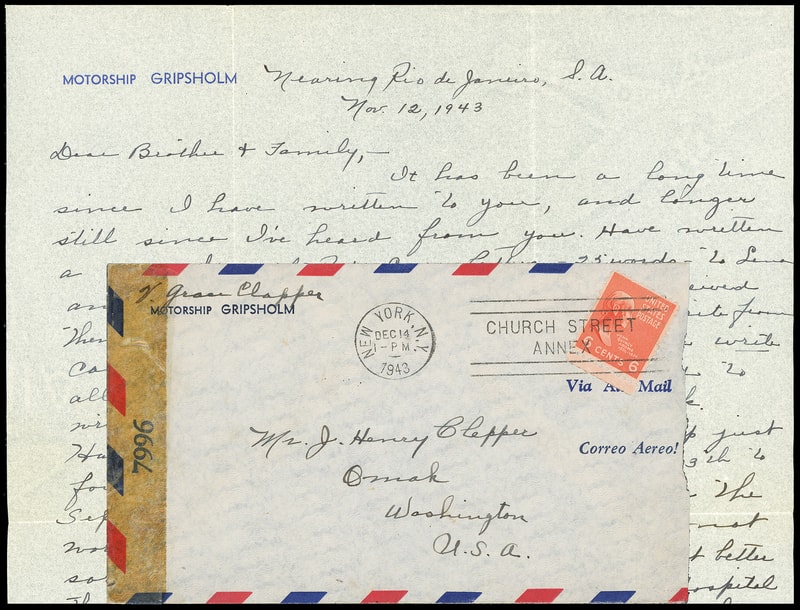 MOTORSHIP GRIPSHOLM
Nearing Rio de Janeiro, S.A.
Nov. 12, 1943
Dear Brother & Family,-
It has been a long time
since I have written to you, and longer
still since I've heard from you. Have written
a 25 words - to Lena
an
Then write
Ca to
all
wri
Ha just
fou 13th to
Sep The
wo not
so better
Th hospital
V. Grace Clapper
MOTORSHIP GRIPSHOLM
NEW YORK, N.Y.
DEC 14
1-PM
1943
CHURCH STREET
ANNEX
UNITED
STATES
POSTAGE
6 CENTS 6
Via Air Mail
Correo Aereo!
7996
Mr. J. Henry Clapper
Omak
Washington
U.S.A.